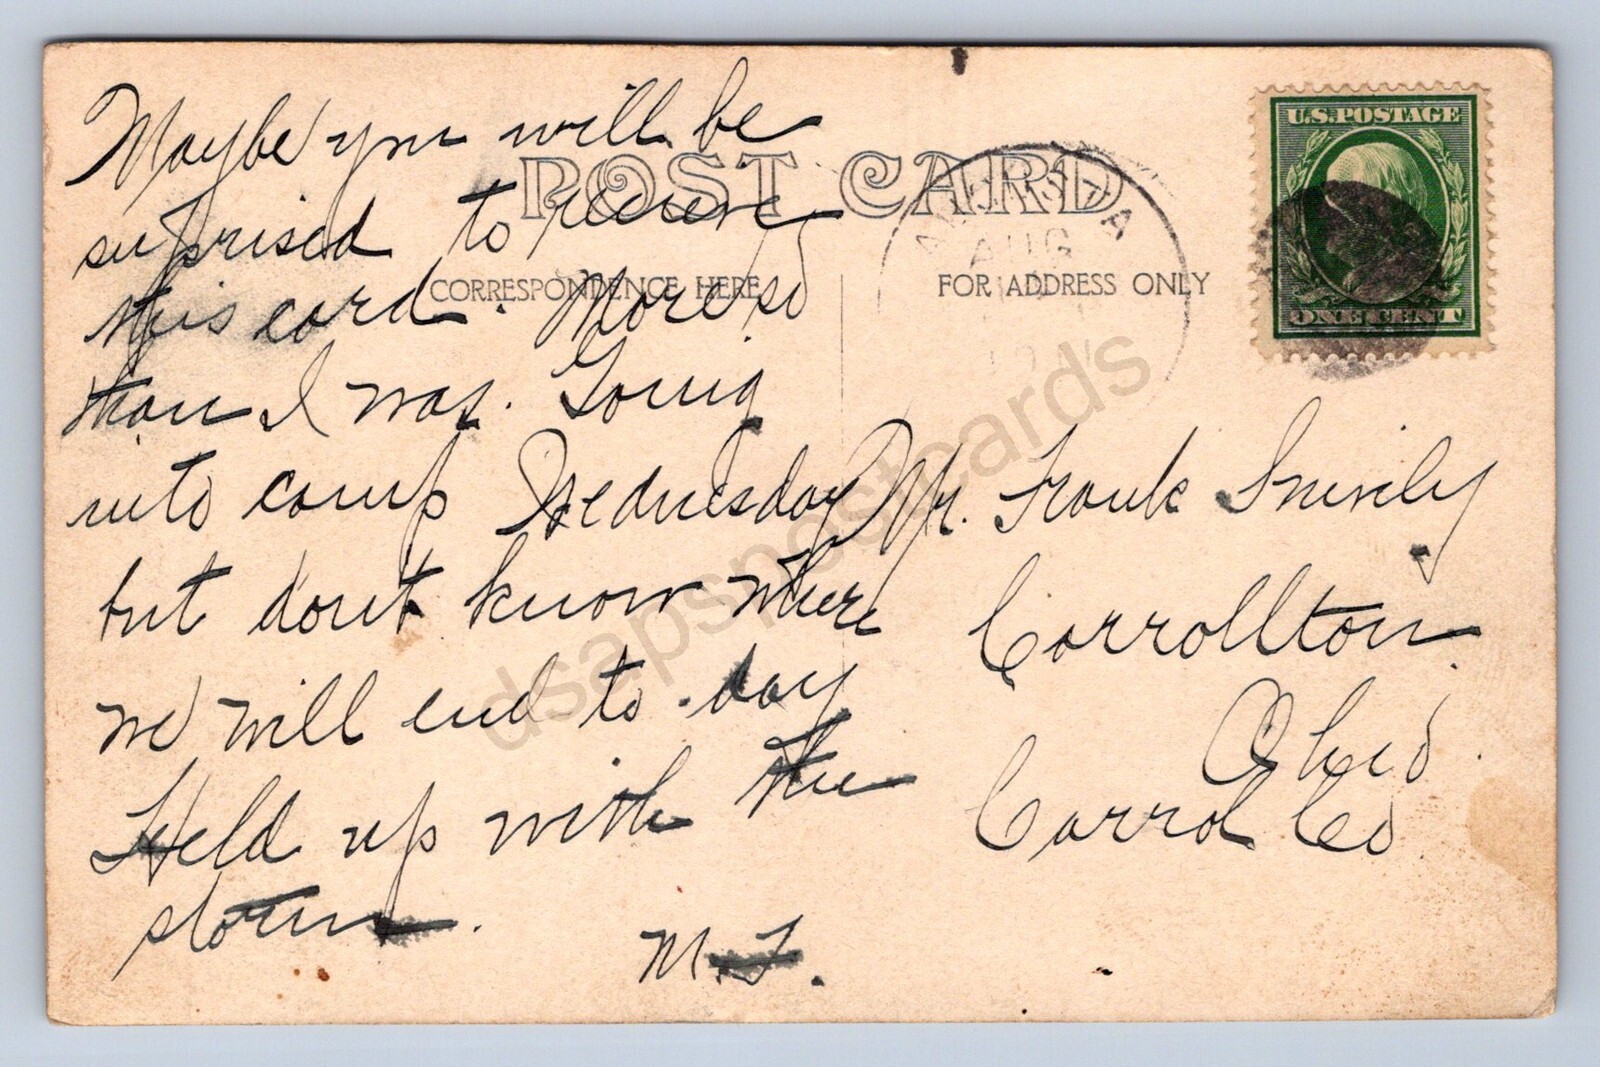 Maybe you will be
surprised to receive
this card. More so
than I was. Going
into camp Wednesday
but don't know where
we will end to day
Held up with the
storm.
M.F.
POST CARD
CORRESPONDENCE HERE
FOR ADDRESS ONLY
AUGUSTA
AUG
U.S. POSTAGE
ONE CENT
Mr. Frank Snively
Carrollton
Ohio.
Carrol Co
dsapspostcards